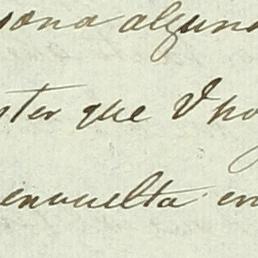 sona alguna
ster que V. ha
envuelta en